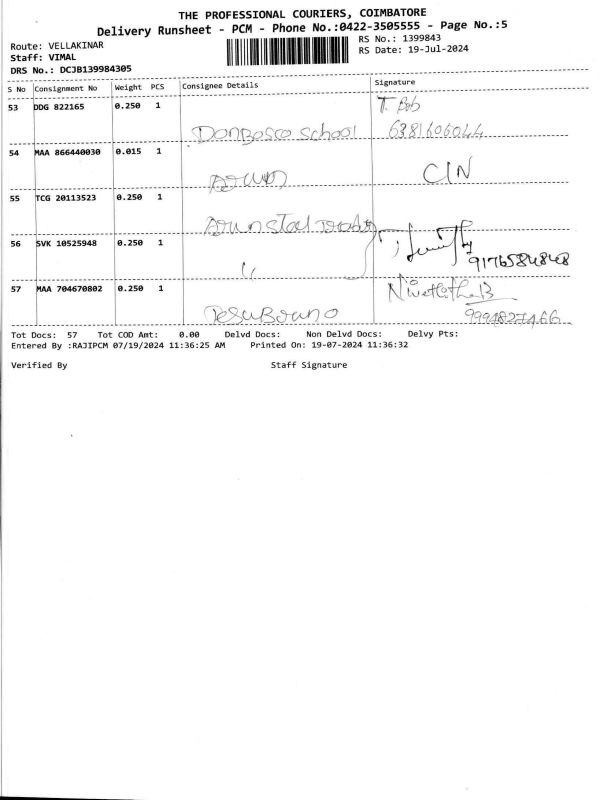 THE PROFESSIONAL COURIERS, COIMBATORE
Delivery Runsheet - PCM - Phone No.:0422-3505555 - Page No.:5
Route: VELLAKINAR
RS No.: 1399843
Staff: VIMAL
RS Date: 19-Jul-2024
DRS No.: DCJB139984305
S No Consignment No Weight PCS Consignee Details Signature
53 DDG 822165 0.250 1
T. Bob
DonBosco School 6381606044
54 MAA 866440030 0.015 1
Arun CIN
55 TCG 20113523 0.250 1
Arun
56 SVK 10525948 0.250 1
9176584848
57 MAA 704670802 0.250 1
9994827466
Tot Docs: 57 Tot COD Amt: 0.00 Delvd Docs: Non Delvd Docs: Delvy Pts:
Entered By :RAJIPCM 07/19/2024 11:36:25 AM Printed On: 19-07-2024 11:36:32
Verified By Staff Signature